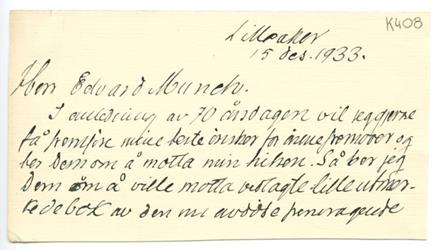 K408
Lilleaker
15 des. 1933.
Herr Edvard Munch.
I anledning av 70 årsdagen vil jeg gjerne
få fremføre mine beste ønsker for årene fremover og
ber Dem om å motta min hilsen. Så ber jeg
Dem om å ville motta vedlagte lille
bok av den nu avdøde fremragende